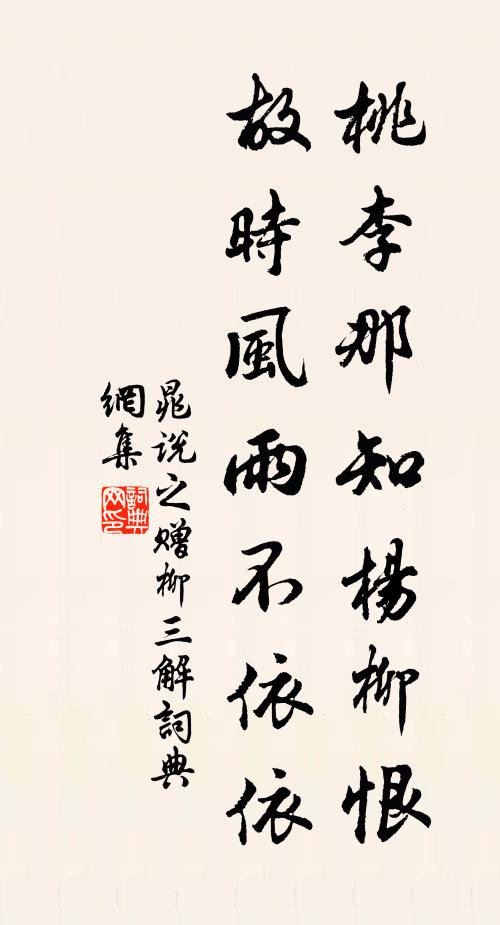 桃李那知楊柳恨
故時風雨不依依
晁說之贈柳三解詞典
網集
詞典
网印